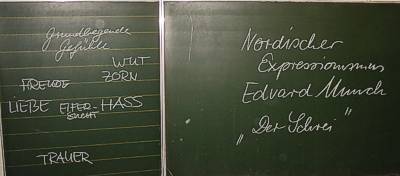 Grundlegende
Gefühle
WUT
ZORN
FREUDE
LIEBE EIFER- HASS
SUCHT
TRAUER
Nordischer
Expressionismus
Edvard Munch
„Der Schrei"